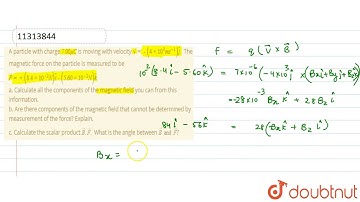 11313844
A particle with charge 7.00μC is moving with velocity
magnetic force on the particle is measured to be
a. Calculate all the components of the magnetic field you can from this
information.
b. Are there components of the magnetic field that cannot be determined by
measurement of the force? Explain.
c. Calculate the scalar product B⃗.F⃗. What is the angle between B⃗ and F⃗?
F = q (V⃗ × B⃗)
= -28×10⁻³ Bx k̂ + 28Bz î
84î - 56k̂ = 28(-Bx k̂ + Bz î)
Bx =
doubtnut